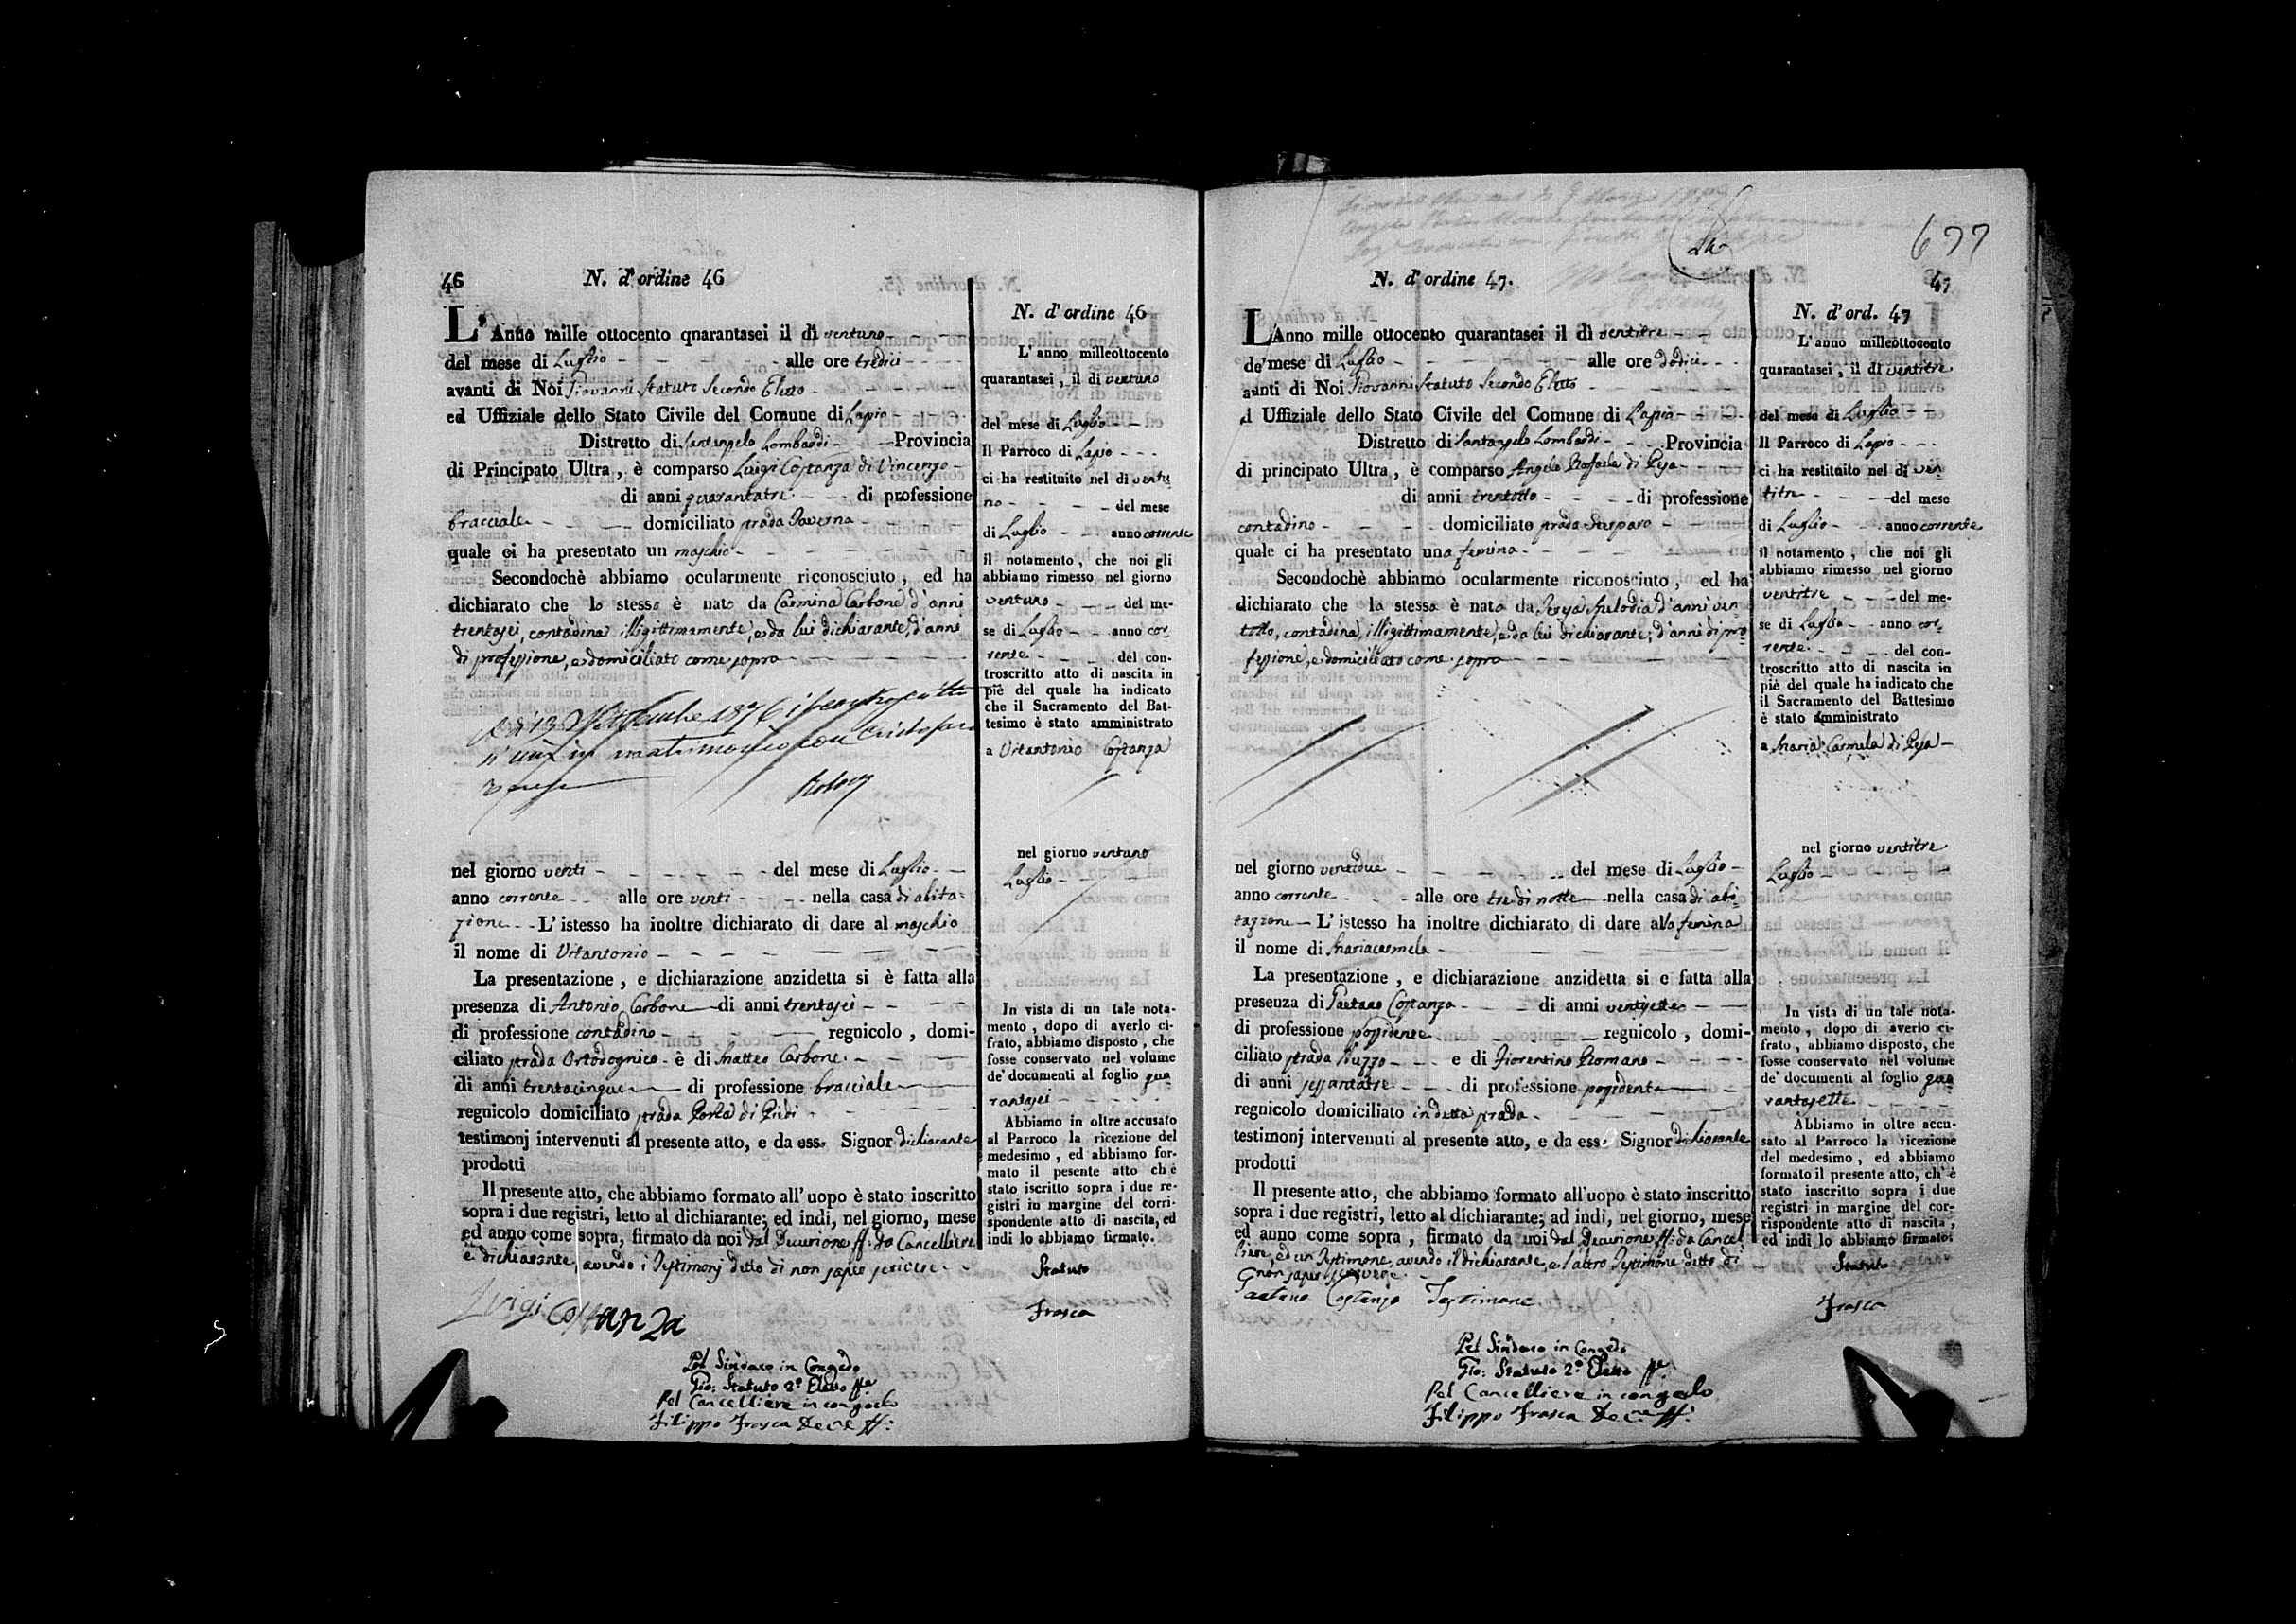 46
N. d'ordine 46
L'Anno mille ottocento qnarantasei il dì ventuno
del mese di Luglio alle ore tredici
avanti di Noi Giovanni Statuto Secondo Eletto
ed Uffiziale dello Stato Civile del Comune di Lapio
Distretto di Santangelo Lombardi Provincia
di Principato Ultra, è comparso Luigi Costanza di Vincenzo
di anni quarantatre di professione
bracciale domiciliato strada Taverna
quale ci ha presentato un maschio
Secondochè abbiamo ocularmente riconosciuto, ed ha
dichiarato che lo stesso è nato da Carmina Carbone d'anni
trentasei, contadina illigittimamente, e da lui dichiarante, d'anni
di professione, e domiciliato come sopra
matrimonio con
nel giorno venti del mese di Luglio
anno corrente alle ore venti nella casa di abita-
zione L'istesso ha inoltre dichiarato di dare al maschio
il nome di Vitantonio
La presentazione, e dichiarazione anzidetta si è fatta alla
presenza di Antonio Carbone di anni trentasei
di professione contadino regnicolo, domi-
ciliato strada Ortodognico è di Matteo Carbone
di anni trentacinque di professione bracciale
regnicolo domiciliato strada Porta di Piedi
testimonj intervenuti al presente atto, e da esso Signor dichiarante
prodotti
Il presente atto, che abbiamo formato all'uopo è stato inscritto
sopra i due registri, letto al dichiarante; ed indi, nel giorno, mese
ed anno come sopra, firmato da noi dal Decurione ff. da Cancelliere
e dichiarante, avendo i Testimonj detto di non saper scrivere
Luigi Costanza
Pel Sindaco in Congedo
Gio: Statuto 2º Eletto ffe
Pel Cancelliere in congedo
Filippo Frasca Decne ff:
N. d'ordine 46
L'anno milleottocento
quarantasei, il dì ventuno
del mese di Luglio
Il Parroco di Lapio
ci ha restituito nel dì ventu
no del mese
di Luglio anno corrente
il notamento, che noi gli
abbiamo rimesso nel giorno
ventuno del me-
se di Luglio anno cor-
rente del con-
troscritto atto di nascita in
piè del quale ha indicato
che il Sacramento del Bat-
tesimo è stato amministrato
a Vitantonio Costanza
nel giorno ventuno
Luglio
In vista di un tale nota-
mento, dopo di averlo ci-
frato, abbiamo disposto, che
fosse conservato nel volume
de' documenti al foglio qua
rantasei
Abbiamo in oltre accusato
al Parroco la ricezione del
medesimo, ed abbiamo for-
mato il pesente atto ch è
stato iscritto sopra i due re-
gistri in margine del corri-
spondente atto di nascita, ed
indi lo abbiamo firmato.
Statuto
Frasca
677
47
N. d'ordine 47.
L'Anno mille ottocento quarantasei il dì ventitre
de' mese di Luglio alle ore dodici
avanti di Noi Giovanni Statuto Secondo Eletto
d Uffiziale dello Stato Civile del Comune di Lapio
Distretto di Santangelo Lombardi Provincia
di principato Ultra, è comparso Angelo Raffaele di Pesa
di anni trentotto di professione
contadino domiciliato strada
quale ci ha presentato una femina
Secondochè abbiamo ocularmente riconosciuto, ed ha
dichiarato che la stessa è nata da Melodia d'anni ven
totto, contadina, illigittimamente, e da lui dichiarante, d'anni di pro-
fessione, e domiciliato come sopra
nel giorno ventidue del mese di Luglio
anno corrente alle ore tre di notte nella casa di abi-
tazione L'istesso ha inoltre dichiarato di dare alla femina
il nome di Mariacarmela
La presentazione, e dichiarazione anzidetta si e fatta alla
presenza di Gaetano Costanza di anni ventisette
di professione possidente regnicolo, domi-
ciliato strada Puzzo e di Fiorentino Romano
di anni sessantatre di professione possidente
regnicolo domiciliato in detta strada
testimonj intervenuti al presente atto, e da esso Signor dichiarante
prodotti
Il presente atto, che abbiamo formato all'uopo è stato inscritto
sopra i due registri, letto al dichiarante; ad indi, nel giorno, mese
ed anno come sopra, firmato da noi dal Decurione ff: da Cancel-
liere, ed un Testimone, avendo il dichiarante, e l'altro Testimone detto di
non saper scrivere
Gaetano Costanza Testimone
Pel Sindaco in Congedo
Gio: Statuto 2º Eletto ffe
Pel Cancelliere in congedo
Filippo Frasca Decne ff:
N. d'ord. 47
L'anno milleottocento
quarantasei, il dì ventitre
del mese di Luglio
Il Parroco di Lapio
ci ha restituito nel dì ven
titre del mese
di Luglio anno corrente
il notamento, che noi gli
abbiamo rimesso nel giorno
ventitre del me-
se di Luglio anno cor-
rente del con-
troscritto atto di nascita in
piè del quale ha indicato che
il Sacramento del Battesimo
è stato amministrato
a Maria Carmela di Pesa
nel giorno ventitre
Luglio
In vista di un tale nota-
mento, dopo di averlo ci-
frato, abbiamo disposto, che
fosse conservato nel volume
de' documenti al foglio qua
rantasette
Abbiamo in oltre accu-
sato al Parroco la ricezione
del medesimo, ed abbiamo
formato il presente atto, ch' è
stato inscritto sopra i due
registri in margine del cor-
rispondente atto di nascita,
ed indi lo abbiamo firmato.
Statuto
Frasca